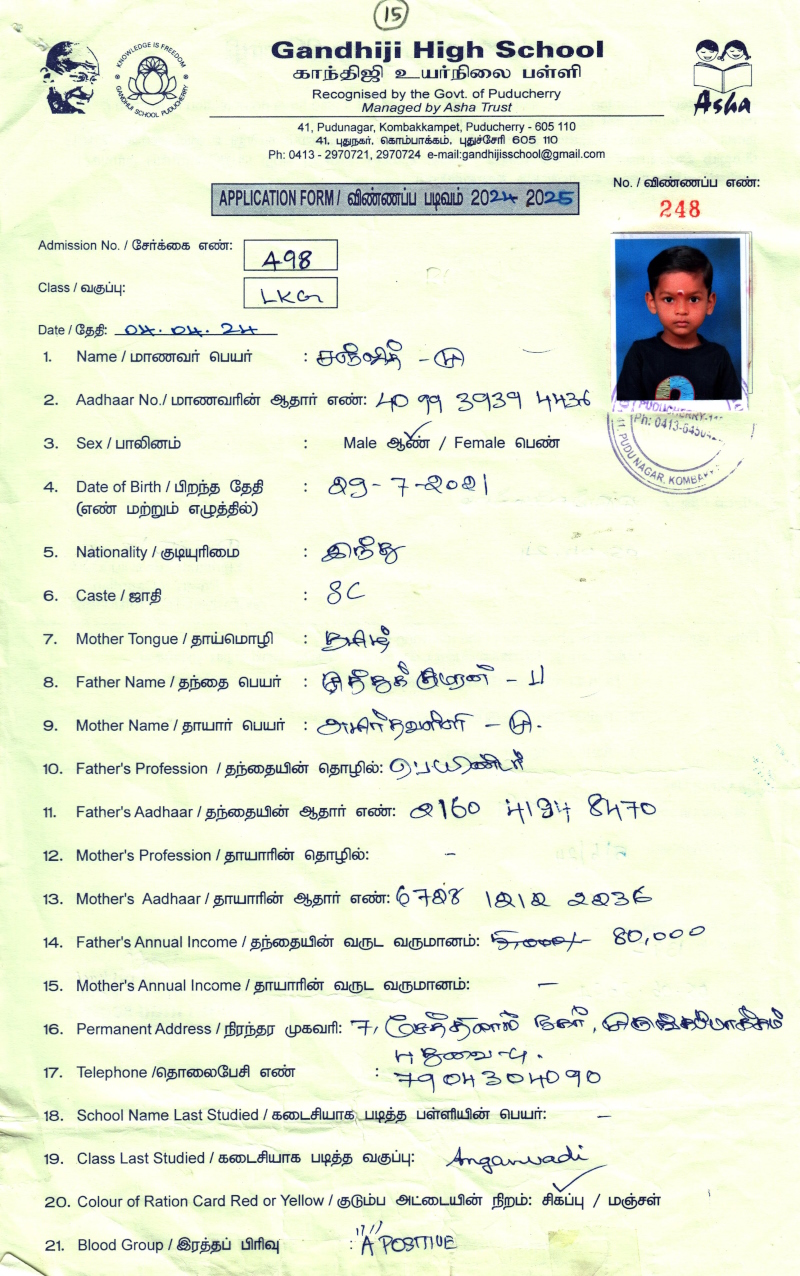 15
KNOWLEDGE IS FREEDOM
GANDHIJI SCHOOL PUDUCHERRY
Gandhiji High School
காந்திஜி உயர்நிலை பள்ளி
Recognised by the Govt. of Puducherry
Managed by Asha Trust
Asha
41, Pudunagar, Kombakkampet, Puducherry - 605 110
41, புதுநகர், கொம்பாக்கம், புதுச்சேரி 605 110
Ph: 0413 - 2970721, 2970724 e-mail:gandhijisschool@gmail.com
APPLICATION FORM / விண்ணப்ப படிவம் 2024 2025
No. / விண்ணப்ப எண்:
248
Admission No. / சேர்க்கை எண்: 498
Class / வகுப்பு: LKG
Date / தேதி: 04.04.24
1. Name / மாணவர் பெயர் : சஞ்ஜித் - மு
2. Aadhaar No./ மாணவரின் ஆதார் எண்: 4099 3939 4436
PUDUCHERRY
Ph: 0413-6450
41, PUDU NAGAR, KOMBAKK
3. Sex / பாலினம் : Male ஆண் / Female பெண்
4. Date of Birth / பிறந்த தேதி : 29-7-2021
(எண் மற்றும் எழுத்தில்)
5. Nationality / குடியுரிமை : இந்து
6. Caste / ஜாதி : SC
7. Mother Tongue / தாய்மொழி : தமிழ்
8. Father Name / தந்தை பெயர் : முத்துக்குமரன் - ப
9. Mother Name / தாயார் பெயர் : - மு.
10. Father's Profession / தந்தையின் தொழில்: பெயிண்டர்
11. Father's Aadhaar / தந்தையின் ஆதார் எண்: 2160 4194 8470
12. Mother's Profession / தாயாரின் தொழில்: -
13. Mother's Aadhaar / தாயாரின் ஆதார் எண்: 6728 1212 2236
14. Father's Annual Income / தந்தையின் வருட வருமானம்: 80,000
15. Mother's Annual Income / தாயாரின் வருட வருமானம்: -
16. Permanent Address / நிரந்தர முகவரி: 7, நகர்,
புதுவை-4.
17. Telephone /தொலைபேசி எண் : 7904304090
18. School Name Last Studied / கடைசியாக படித்த பள்ளியின் பெயர்: -
19. Class Last Studied / கடைசியாக படித்த வகுப்பு: Anganwadi
20. Colour of Ration Card Red or Yellow / குடும்ப அட்டையின் நிறம்: சிகப்பு / மஞ்சள்
21. Blood Group / இரத்தப் பிரிவு : "A POSITIVE